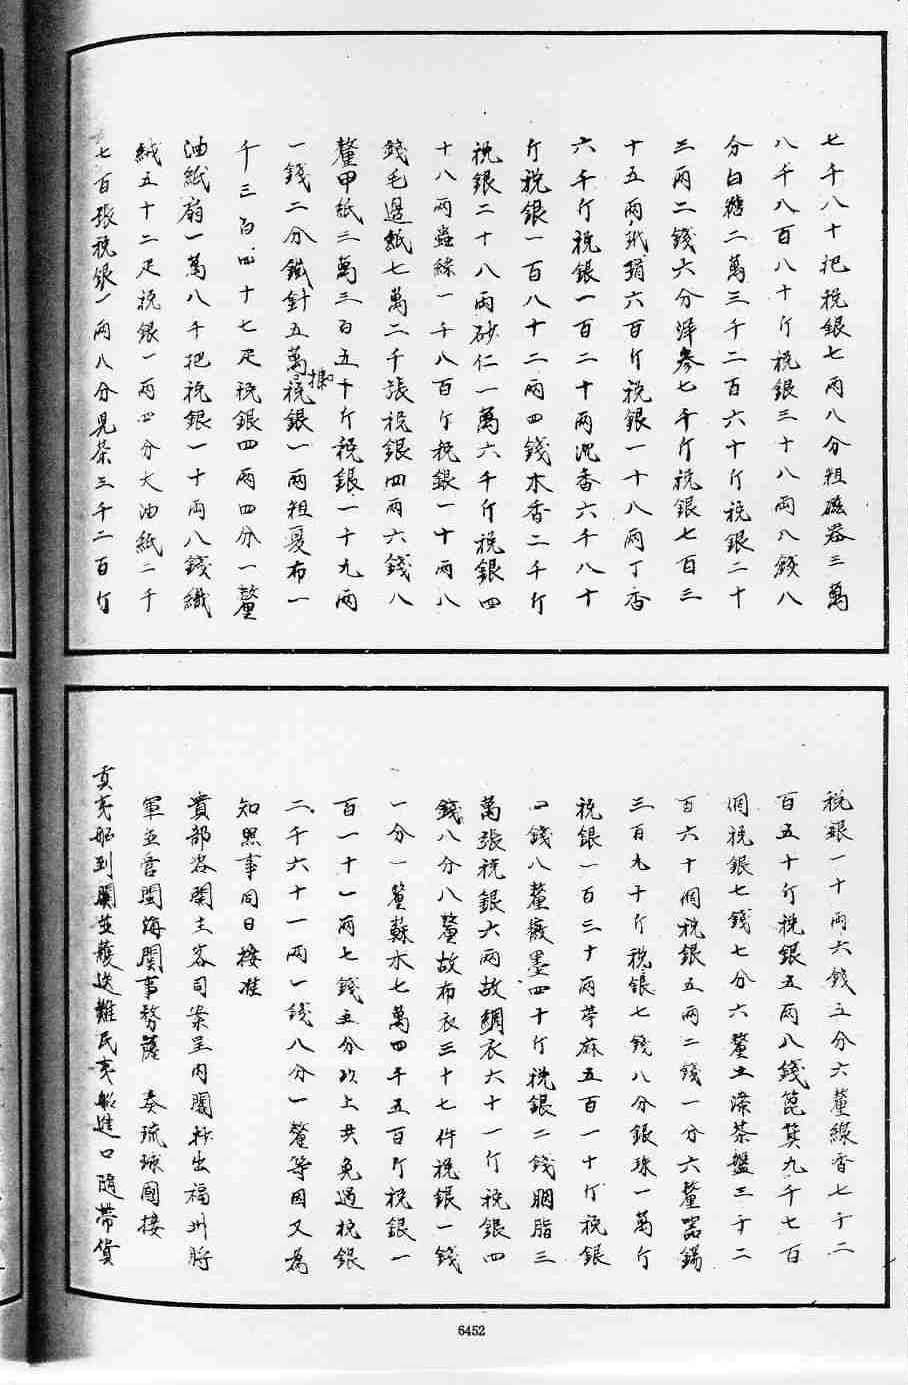 七千八十把税銀七兩八分粗磁器三萬
八千八百八十斤税銀三十八兩八錢八
分白糖二萬三千二百六十斤税銀二十
三兩二錢六分洋參七千斤税銀七百三
十五兩玳瑁六百斤税銀一十八兩丁香
六千斤税銀一百二十兩沉香六千八十
斤税銀一百八十二兩四錢木香二千斤
税銀二十八兩砂仁一萬六千斤税銀四
十八兩蟲絲一千八百斤税銀一十兩八
錢毛邊紙七萬二千張税銀四兩六錢八
釐甲紙三萬三百五十斤税銀一十九兩
一錢二分鐵針五萬根税銀一兩粗夏布一
千三百四十七疋税銀四兩四分一釐
油紙扇一萬八千把税銀一十兩八錢織
絨五十二疋税銀一兩四分大油紙二千
七百張税銀一兩八分兒茶三千二百斤
税銀一十兩六錢五分六釐線香七千二
百五十斤税銀五兩八錢篦箕九千七百
個税銀七錢七分六釐土漆茶盤三千二
百六十個税銀五兩二錢一分六釐器錫
三百九十斤税銀七錢八分銀珠一萬斤
税銀一百三十兩苧麻五百一十斤税銀
四錢八釐徽墨四十斤税銀二錢胭脂三
萬張税銀六兩故綢衣六十一斤税銀四
錢八分八釐故布衣三十七件税銀一錢
一分一釐蘇木七萬四千五百斤税銀一
百一十一兩七錢五分以上共免過税銀
二千六十一兩一錢八分一釐等因又為
知照事同日接准
貴部咨関主客司案呈内閣抄出福州將
軍並管閩海関事務薩 奏琉球國接
貢夷船到關並護送難民夷船進口隨帶貨
6452